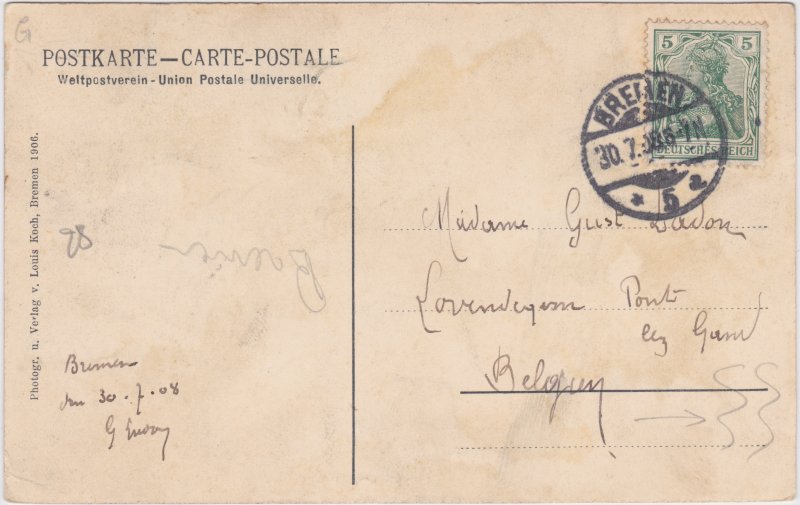 G
POSTKARTE—CARTE-POSTALE
Weltpostverein - Union Postale Universelle.
5 5
DEUTSCHES REICH
BREMEN
30.7.08 6-7N
* 5 a
Photogr. u. Verlag v. Louis Koch, Bremen 1906.
98
Bremen
Madame Gust
Lovendegem Pont
lez Gand
Belgien
Bremen
den 30.7.08
G